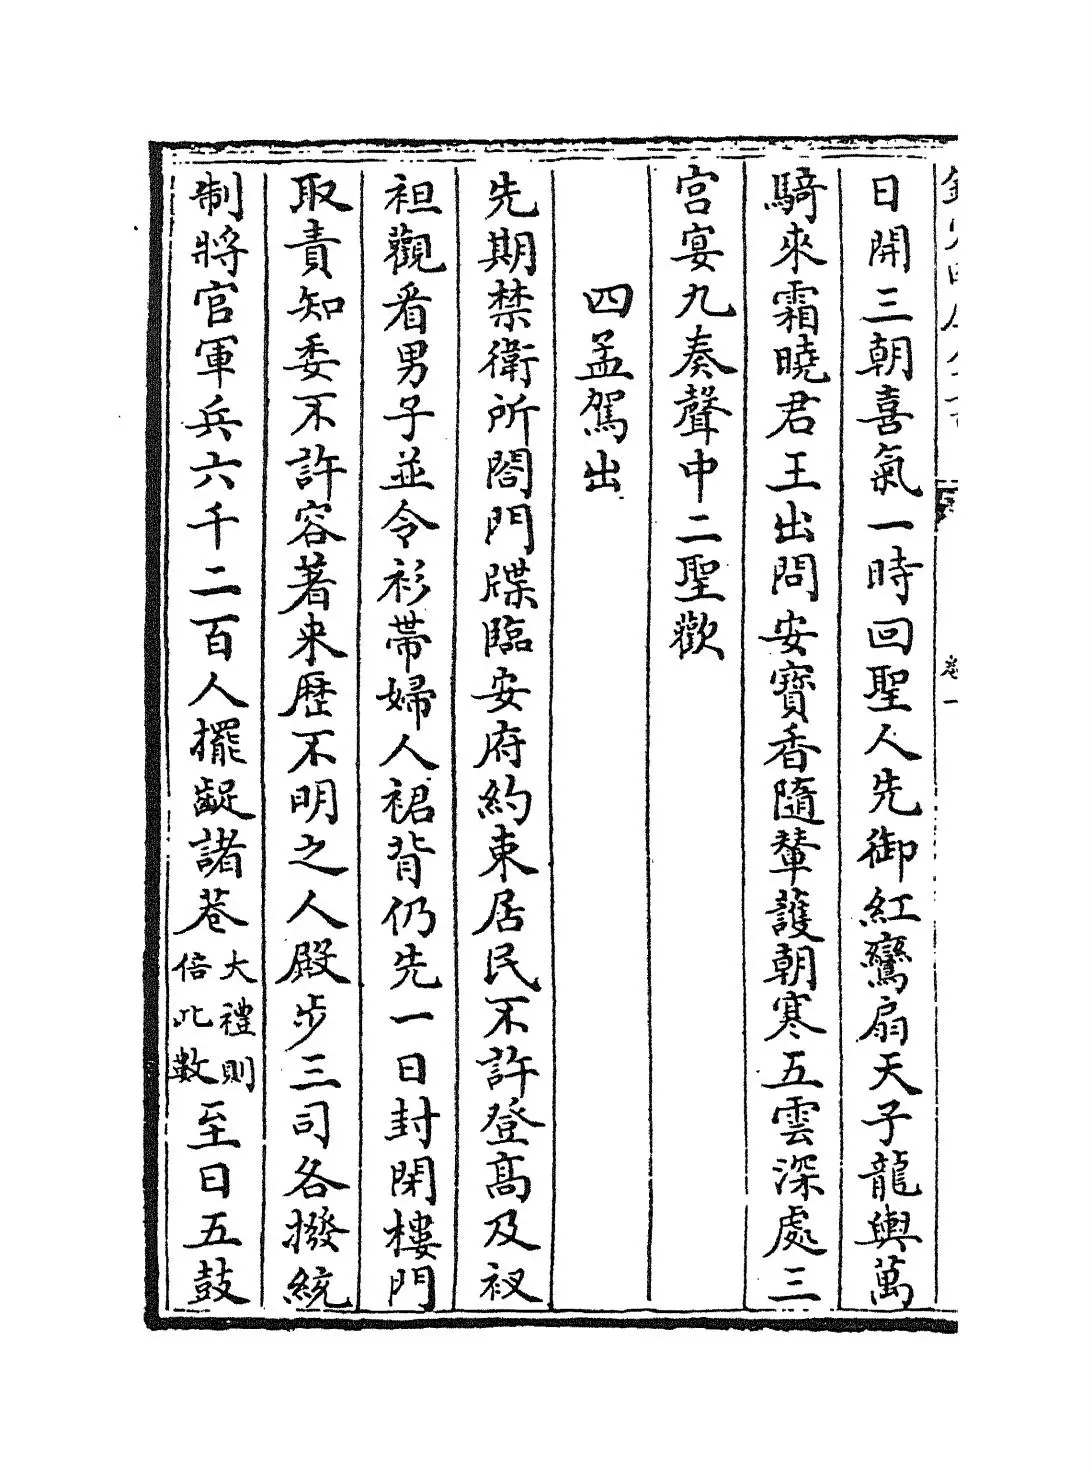 卷一
日開三朝喜氣一時回聖人先御紅鸞扇天子龍輿萬
騎來霜曉君王出問安寶香隨輦護朝寒五雲深處三
宮宴九奏聲中二聖歡
四孟駕出
先期禁衛所閤門牒臨安府約束居民不許登高及衩
袒觀看男子並令衫帶婦人裙背仍先一日封閉樓門
取責知委不許容著来歷不明之人殿步三司各撥統
制將官軍兵六千二百人擺龊諸巷大禮則倍此數至日五鼓